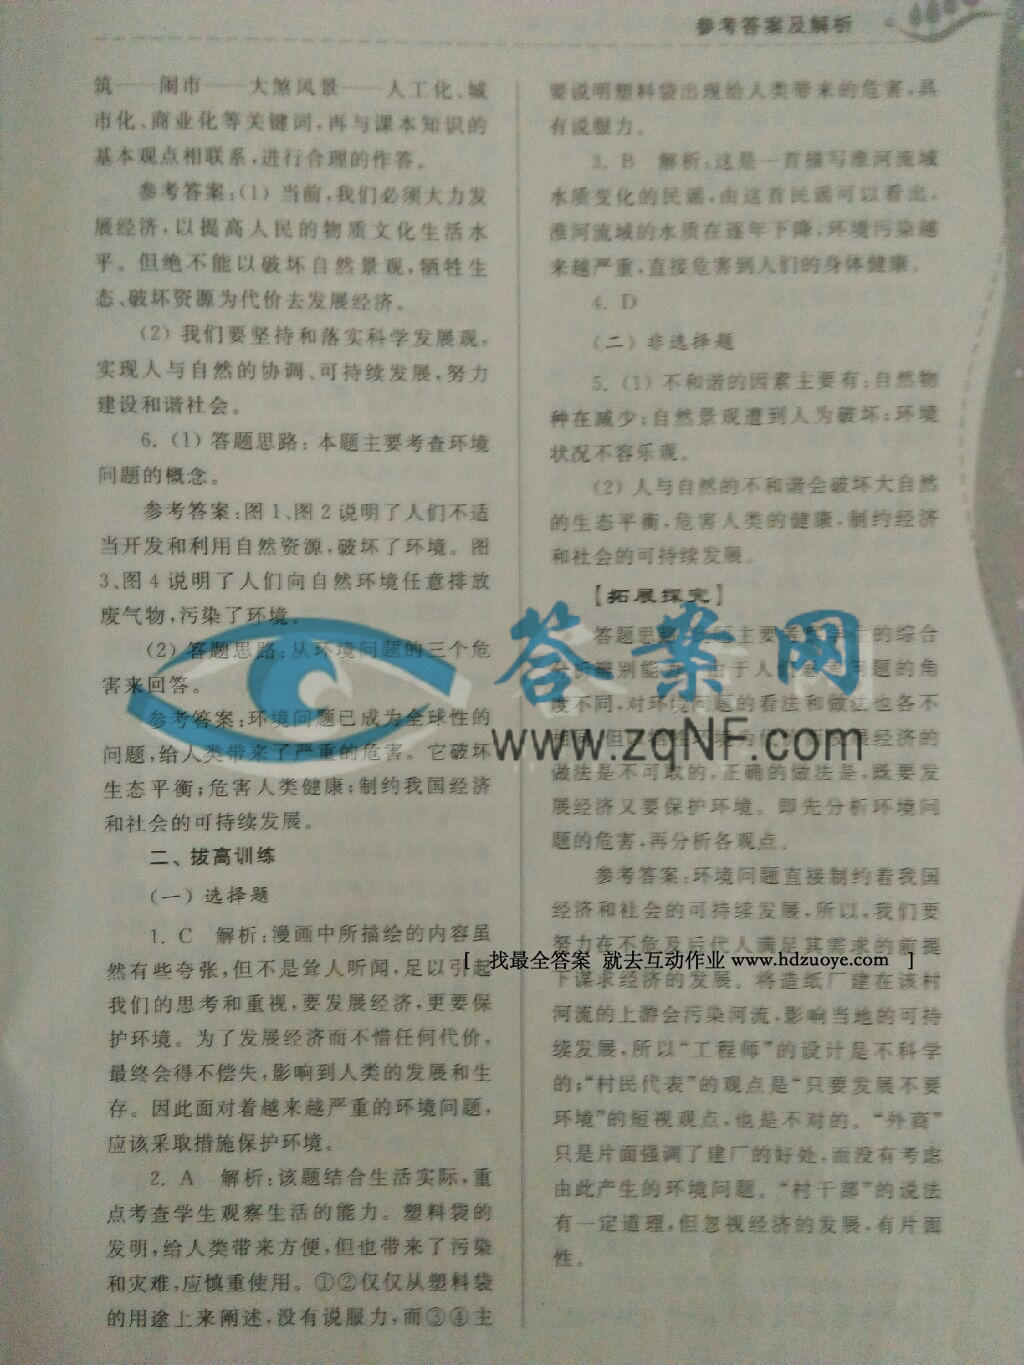 参考答案及解析
筑——闹市——大煞风景——人工化、城
市化、商业化等关键词,再与课本知识的
基本观点相联系,进行合理的作答。
参考答案:(1)当前,我们必须大力发
展经济,以提高人民的物质文化生活水
平。但绝不能以破坏自然景观,牺牲生
态、破坏资源为代价去发展经济。
(2)我们要坚持和落实科学发展观,
实现人与自然的协调、可持续发展,努力
建设和谐社会。
6.(1)答题思路:本题主要考查环境
问题的概念。
参考答案:图1、图2说明了人们不适
当开发和利用自然资源,破坏了环境。图
3、图4说明了人们向自然环境任意排放
废气物,污染了环境。
(2)答题思路:从环境问题的三个危
害来回答。
参考答案:环境问题已成为全球性的
问题,给人类带来了严重的危害。它破坏
生态平衡;危害人类健康;制约我国经济
和社会的可持续发展。
二、拔高训练
(一)选择题
1. C 解析:漫画中所描绘的内容虽
然有些夸张,但不是耸人听闻,足以引起
我们的思考和重视,要发展经济,更要保
护环境。为了发展经济而不惜任何代价,
最终会得不偿失,影响到人类的发展和生
存。因此面对着越来越严重的环境问题,
应该采取措施保护环境。
2. A 解析:该题结合生活实际,重
点考查学生观察生活的能力。塑料袋的
发明,给人类带来方便,但也带来了污染
和灾难,应慎重使用。①②仅仅从塑料袋
的用途上来阐述,没有说服力,而③④主
要说明塑料袋出现给人类带来的危害,具
有说服力。
3. B 解析:这是一首描写淮河流域
水质变化的民谣,由这首民谣可以看出,
淮河流域的水质在逐年下降,环境污染越
来越严重,直接危害到人们的身体健康。
4. D
(二)非选择题
5.(1)不和谐的因素主要有:自然物
种在减少;自然景观遭到人为破坏;环境
状况不容乐观。
(2)人与自然的不和谐会破坏大自然
的生态平衡,危害人类的健康,制约经济
和社会的可持续发展。
【拓展探究】
答题思路 主要 的综合
分析辨别能力 由于人们 问题的角
度不同,对环境问题的看法和做法也各不
相同,但 环境为 发展经济的
做法是不可取的,正确的做法是,既要发
展经济又要保护环境。即先分析环境问
题的危害,再分析各观点。
参考答案:环境问题直接制约着我国
经济和社会的可持续发展,所以,我们要
努力在不危及后代人满足其需求的前提
下谋求经济的发展。将造纸厂建在该村
河流的上游会污染河流,影响当地的可持
续发展,所以“工程师”的设计是不科学
的;“村民代表”的观点是“只要发展不要
环境”的短视观点,也是不对的。“外商”
只是片面强调了建厂的好处,而没有考虑
由此产生的环境问题。“村干部”的说法
有一定道理,但忽视经济的发展,有片面
性。
答案网
www.zqNF.com
[ 找最全答案 就去互动作业 www.hdzuoye.com ]